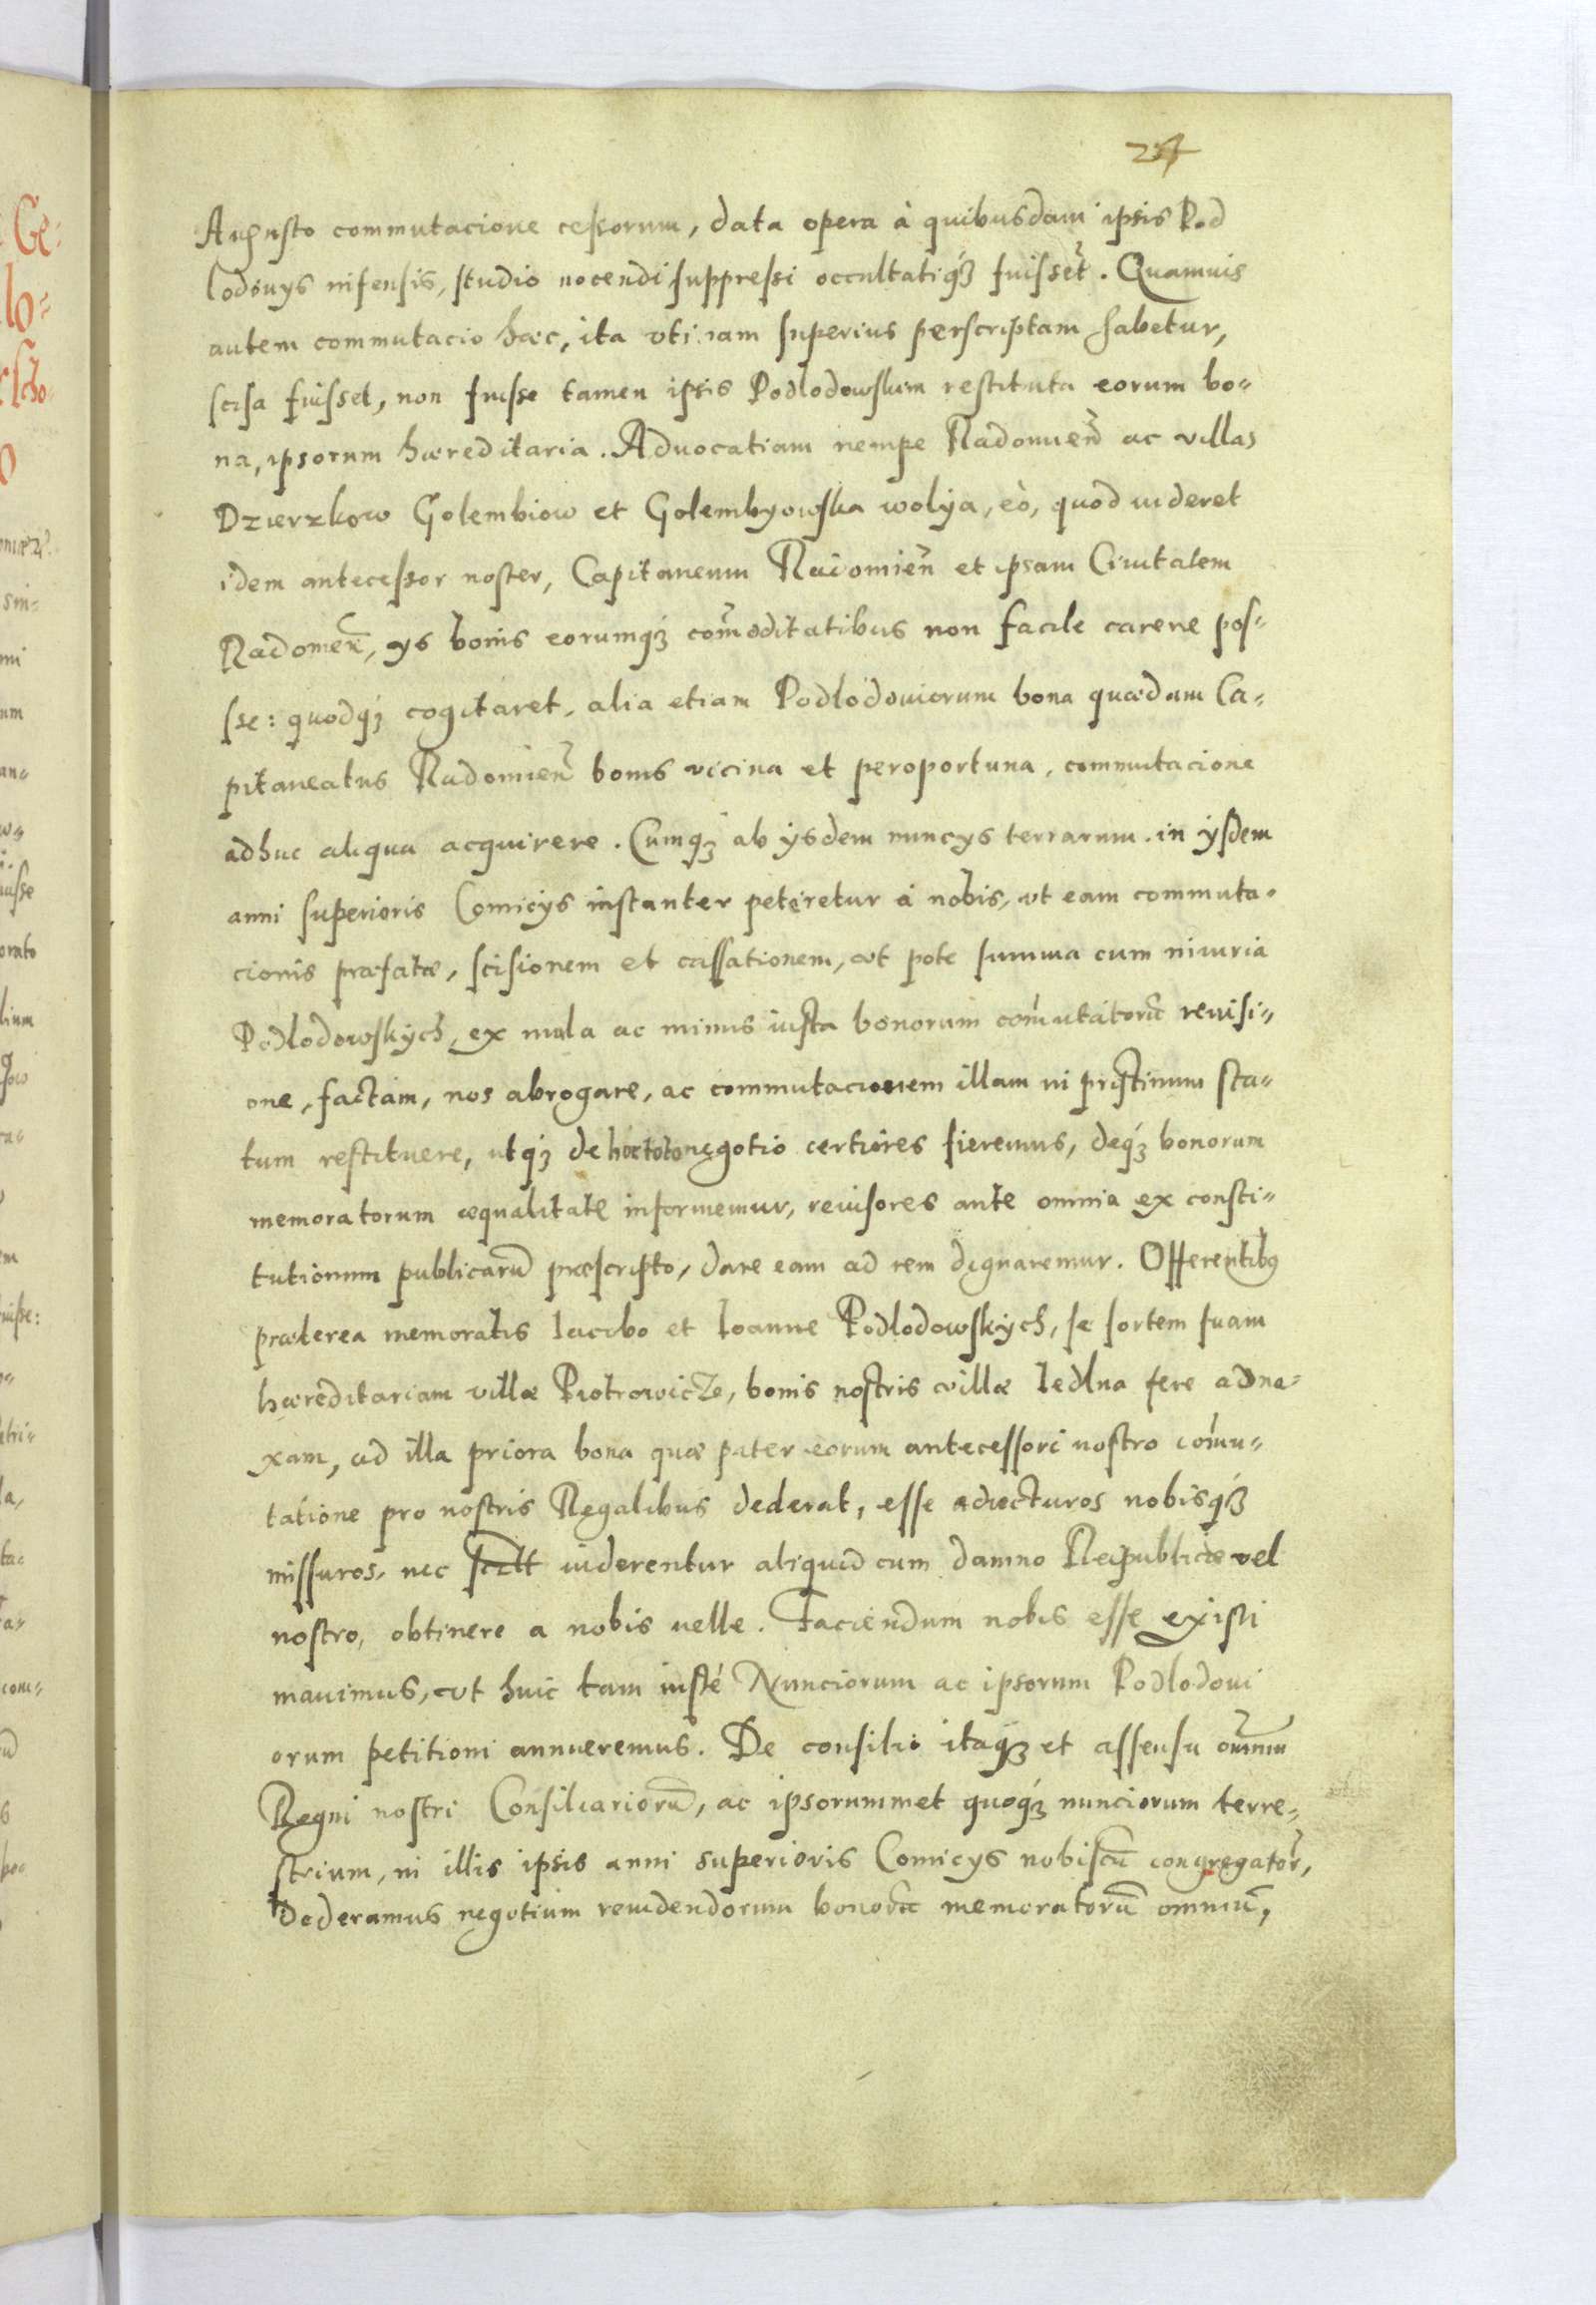 257
Augusto commutacione cessorum, data opera à quibusdam ipsis Pod
lodouys infensis, studio nocendi suppressi occultatiq́ȝ fuisset̃. Quamuis
autem commutacio hæc, ita vti iam superius perscriptam habetur,
scisa fuisset, non fuisse tamen ipsis Podlodowskim restituta eorum bo-
na, ipsorum hæreditaria. Aduocatiam nempe Radomieñ ac villas
Dzierzkow Golembiow et Golembyowska wolya, eò, quod uideret
idem antecessor noster, Capitaneum Radomieñ et ipsam Ciuitatem
Radomeñ, ys bonis eorumq́ȝ com̃oditatibus non facile carere pos-
sse: quodq́ȝ cogitaret, alia etiam Podlodouiorum bona quædam Ca-
pitaneatus Radomieñ bonis vicina et peroportuna, commutacione
adhuc aliqua acquirere. Cumq́ȝ ab ysdem nuncys terrarum in ysdem
anni superioris Comicys instanter peteretur à nobis, vt eam commuta-
cionis præfatæ, scisionem et cassationem, vt pote summa cum iniuria
Podlodowskych, ex mala ac minus iusta bonorum com̃utatorũ reuisi-
one, factam, nos abrogare, ac commutacionem illam in pristinum sta-
tum restituere, utq́ȝ de hoc toto negotio certiores fieremus, deq́ȝ bonorum
memoratorum æqualitate informemur, reuisores ante omnia ex consti-
tutionum publicarũ præscripto, dare eam ad rem dignaremur. Offerentibꝰ
præterea memoratis Iacobo et Ioanne Podlodowskych, se sortem suam
hæreditariam villæ Piotrowicze, bonis nostris villæ Iedlna fere adne-
xam, ad illa priora bona quæ pater eorum antecessori nostro com̃u-
tatione pro nostris Regalibus dederat, esse adiecturos nobisq́ȝ
missuros, nec uiderentur aliquid cum damno Reipublicæ vel
nostro, obtinere a nobis uelle. Faciendum nobis esse existi
mauimus, vt huic tam iustè Nunciorum ac ipsorum Podlodoui
orum petitioni annueremus. De consilio itaq́ȝ et assensu omniũ
Regni nostri Consiliariorũ, ac ipsorummet quoq́ȝ nunciorum terre-
strium, in illis ipsis anni superioris Comicys nobiscũ congregator̃,
Dederamus negotium reuidendorum bonorũ memoratorũ omniũ,